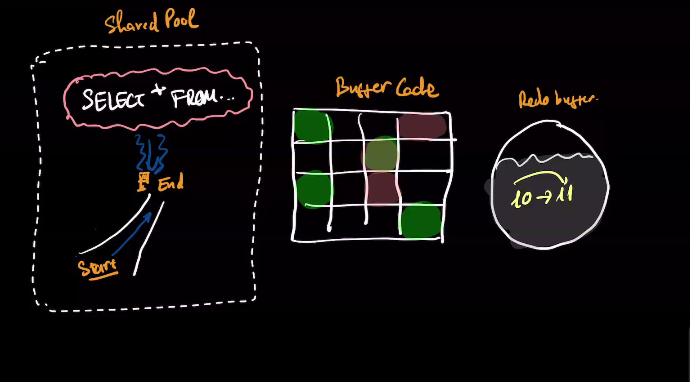 Shared Pool
SELECT * FROM...
End
Start
Buffer Cache
Redo buffer.
10 → 11